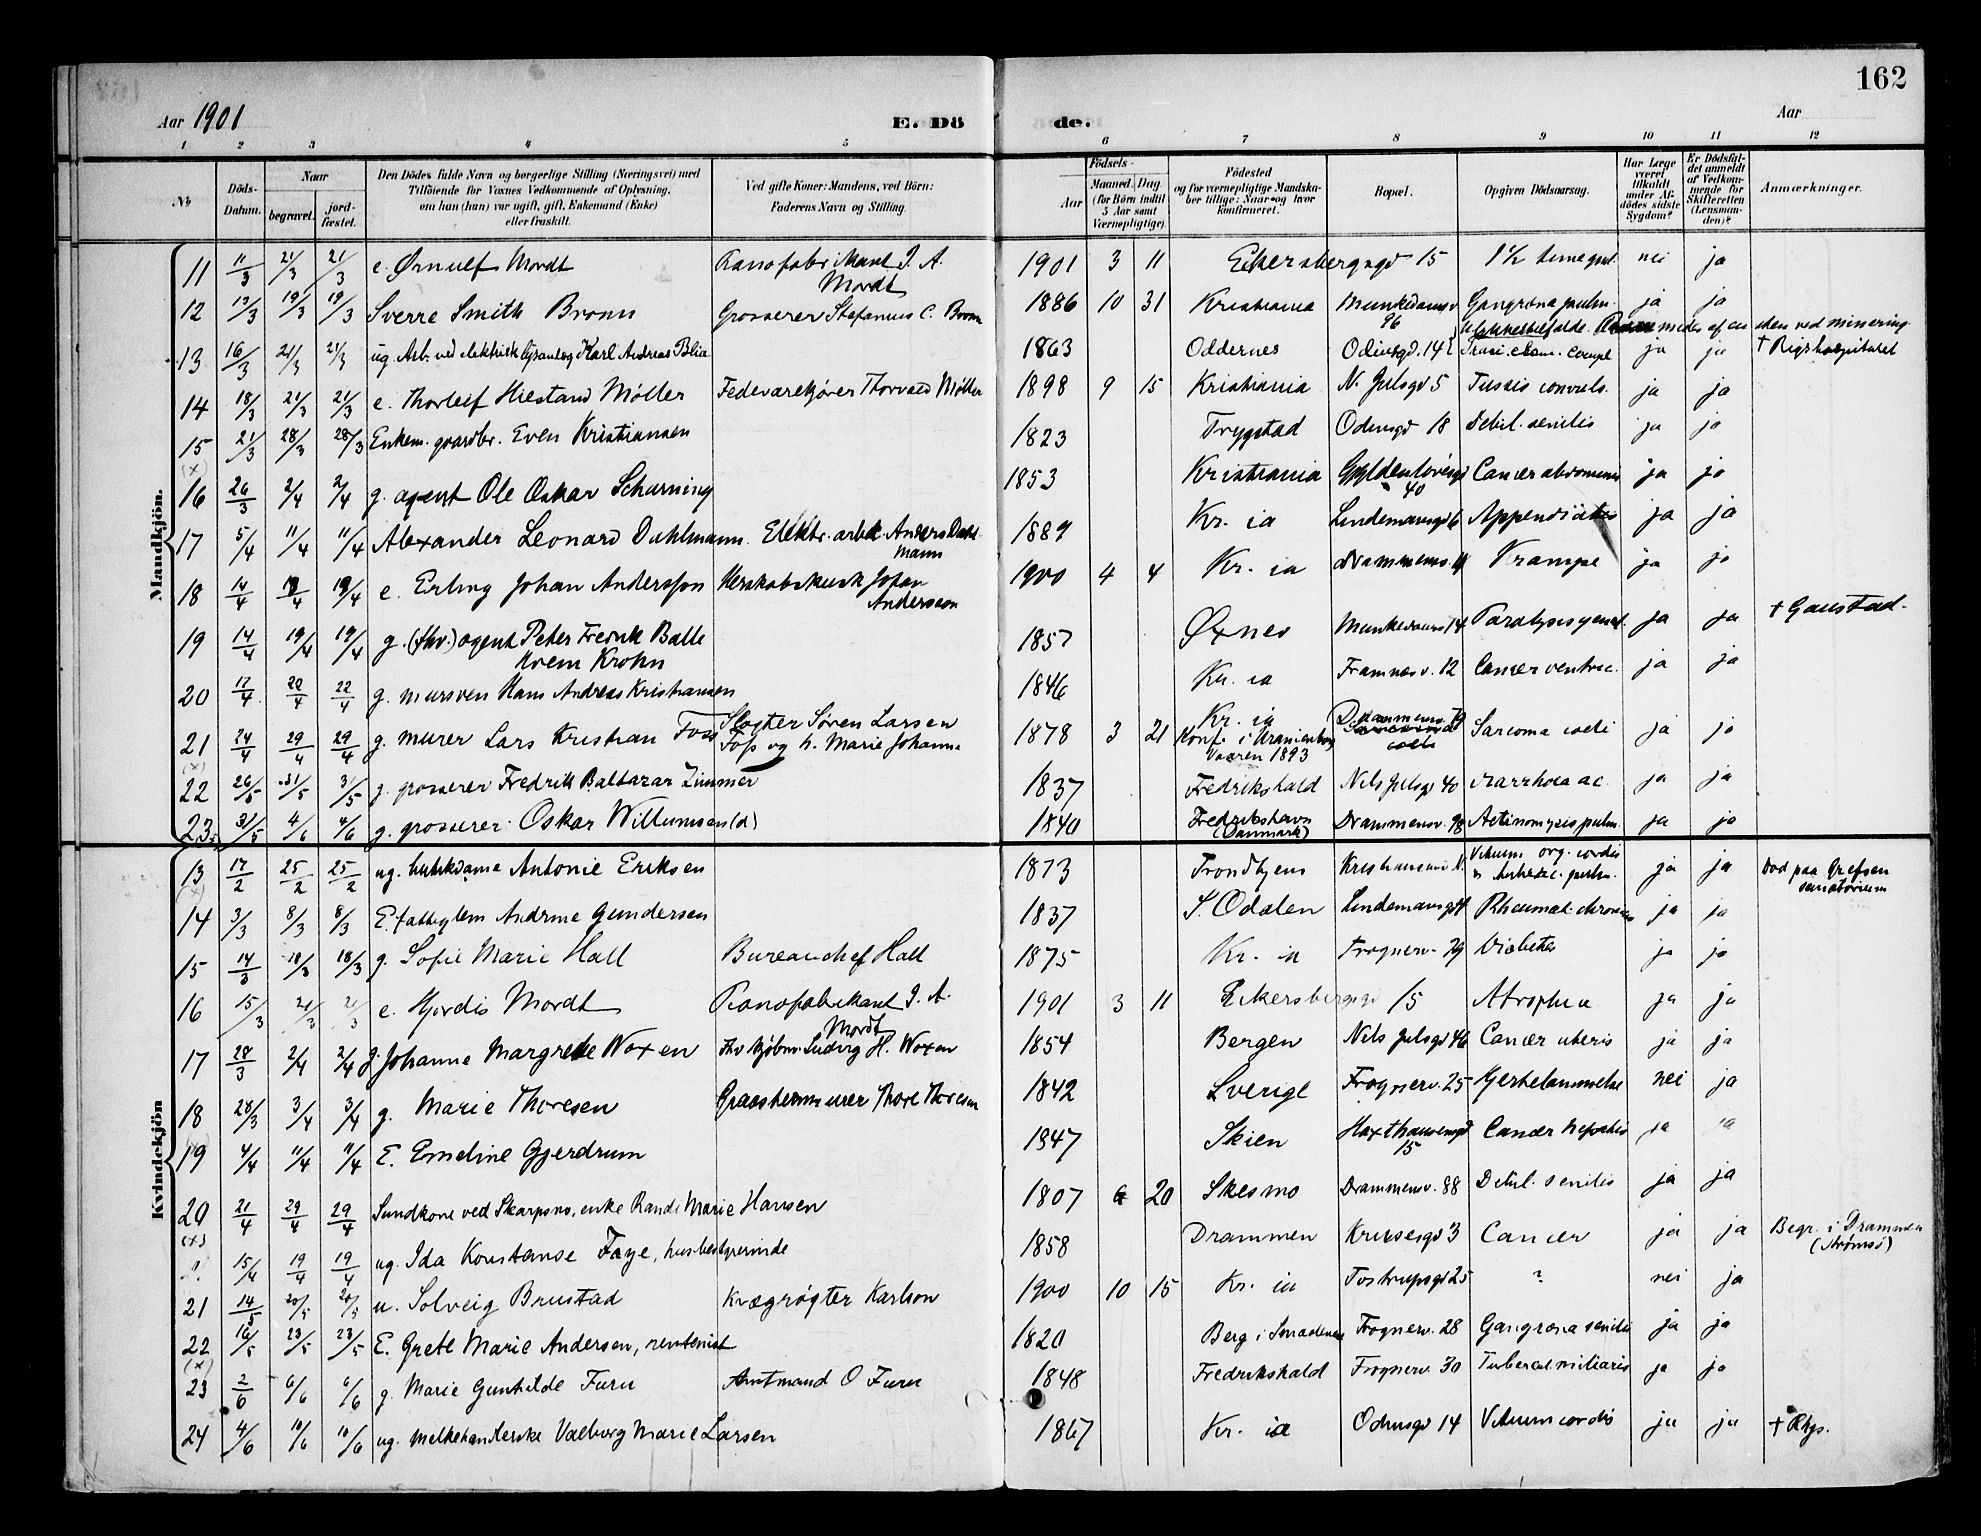 162
Aar 1901
E. Dö
de.
Aar
1 2 3 4 5 6 7 8 9 10 11 12
No
Döds-Datum.
Naar
begravet.
jord-fæstet.
Den Dödes fulde Navn og borgerlige Stilling (Næringsvei) med
Tilföiende for Voxnes Vedkommende af Oplysning,
om han (hun) var ugift, gift, Enkemand (Enke)
eller fraskilt.
Ved gifte Koner: Mandens, ved Börn:
Faderens Navn og Stilling.
Födsels-
Aar
Maaned. Dag
(for Börn indtil
5 Aar samt
Værnepligtige).
Födested
og for værnepligtige Mandska-
ber tillige: Naar og hvor
konfirmeret.
Bopæl.
Opgiven Dödsaarsag.
Har Læge
været
tilkaldt
under Af-
dödes sidste
Sygdom?
Er Dödsfal-
det anmeldt
af Vedkom-
mende for
Skifteretten
(Lensman-
den)?
Anmærkninger.
Mandkjön.
11 11/3 21/3 21/3 e. Ørnulf Mordt Pianofabrikant I. A. Mordt 1901 3 11 Eckersbergsgd 15 1 1/2 time gml. nei ja
12 13/3 19/3 19/3 Sverre Smith Bronn Grosserer Stefanus C. Bronn 1886 10 31 Kristiania Munkedamsv 96 Gangræna pulm. ja ja
13 16/3 21/3 21/3 ug. Arb. ved elektrisk lysanlæg Karl Andreas Blix 1863 Oddernes Odinsgd. 14 Ulykkestilfælde ja ja † Rigshospitalet
14 18/3 21/3 21/3 e. Thorleif Hiestand Møller Fedevarekjører Thorvald Møller 1898 9 15 Kristiania N. Julsgd 5 Tussis convuls. ja ja
15 21/3 28/3 28/3 Enkem. gaardbr. Even Kristiansen 1823 Trygstad Odinsgd 18 Debil. senilis ja ja
(x)
16 26/3 2/4 2/4 g. agent Ole Oskar Scharning 1853 Kristiania Gyldenløvesgd 40 Cancer abdominis ja ja
17 5/4 11/4 11/4 Alexander Leonard Dahlmann Elektr. arbd. Anders Dahlmann 1889 Kr. ia Lindemansgd 6 Appendicitis ja ja
18 14/4 19/4 19/4 e. Erling Johan Andersson Herskabskusk Johan Andersson 1900 4 4 Kr. ia Drammensv. Krampe ja ja
19 14/4 19/4 19/4 g. (fhv.) agent Peter Fredrik Balle Hvem Krohn 1857 Øxnes Munkedamsv 14 Paralysis general. ja ja † Gaustad.
20 17/4 22/4 22/4 g. mursven Hans Andreas Kristiansen 1846 Kr. ia Framnæsv. 12 Cancer ventric. ja ja
21 24/4 29/4 29/4 g. murer Lars Kristian Foss Slagter Søren Larsen Foss og h. Marie Johanne 1878 3 21 Kr. ia Konf. i Uranienborg Vaaren 1893 Drammensv. 79 Sarcoma coeli ja ja
(x)
22 26/5 31/5 31/5 g. grosserer Fredrik Baltazar Zimmer 1837 Fredrikshald Nils Julsgd 40 diarrhoea ac. ja ja
23. 31/5 4/6 4/6 g. grosserer Oskar Willumsen (d) 1840 Fredrikshavn (Danmark) Drammensv. 98 Actinomycis pulm. ja ja
Kvindekjön
13 17/2 25/2 25/2 ug. butikdame Antonie Eriksen 1873 Trondhjem Vitium org. cordis ja ja Død paa Grefsen sanatorium
14 3/3 8/3 8/3 E. fattiglem Andrine Gundersen 1837 S. Odalen Lindemansgd Rheumat. chronicus ja ja
15 14/3 18/3 18/3 g. Sofie Marie Hall Bureauchef Hall 1875 Kr. ia Frognerv. 79 Diabetes ja ja
16 15/3 21/3 21/3 e. Hjørdis Mordt Pianofabrikant I. A. Mordt 1901 3 11 Eckersbergsgd 15 Atrophia ja ja
17 28/3 2/4 2/4 g. Johanne Margrete Woxen Fhv kjøbm. Ludvig H. Woxen 1854 Bergen Nils Julsgd 46 Cancer uteris ja ja
18 28/3 3/4 3/4 g. Marie Thoresen Graastensmurer Thore Thoresen 1842 Sverige Frognerv. 25 Hjertelammelse nei ja
19 4/4 11/4 11/4 E. Emeline Gjerdrum 1847 Skien Haxthausensgd 15 Cancer hepatis ja ja
20 21/4 29/4 29/4 Sundkone ved Skarpsno, enke Randi Marie Hansen 1807 6 20 Skesmo Drammensv. 88 Debil. senilis ja ja
(x)
15/4 19/4 19/4 ug. Ida Konstanse Faye, husbestyrerinde 1858 Drammen Krusesgd 3 Cancer ja ja Begr. i Drammen (Strømsø)
21 14/5 20/5 20/5 u. Solveig Brustad Kvægrøgter Karlson 1900 10 15 Kr. ia Tostrupsgd 25 ? nei ja
22 16/5 23/5 23/5 E. Grete Marie Andersen, rentenist 1820 Berg i Smaalenene Frognerv. 28 Gangræna senilis ja ja
(x)
23 2/6 6/6 6/6 g. Marie Gunhilde Furu Amtmand O Furu 1848 Fredrikshald Frognerv. 30 Tubercul. miliaris ja ja
24 4/6 10/6 10/6 ug. melkehandlerske Valborg Marie Larsen 1867 Kr. ia Odinsgd 14 Vitium cordis ja ja † Rhgs.